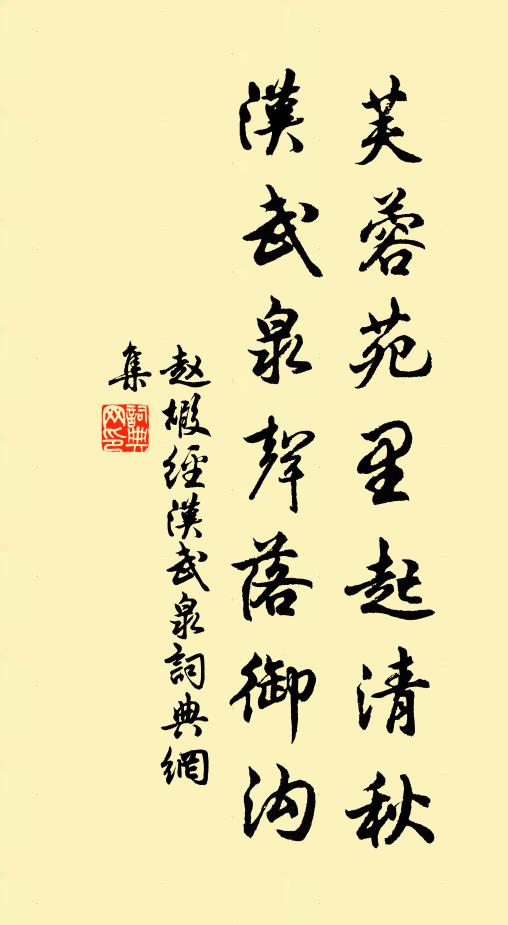 芙蓉苑里起清秋
漢武泉聲落御沟
赵嘏經漢武泉詞典網
集
詞典
网印